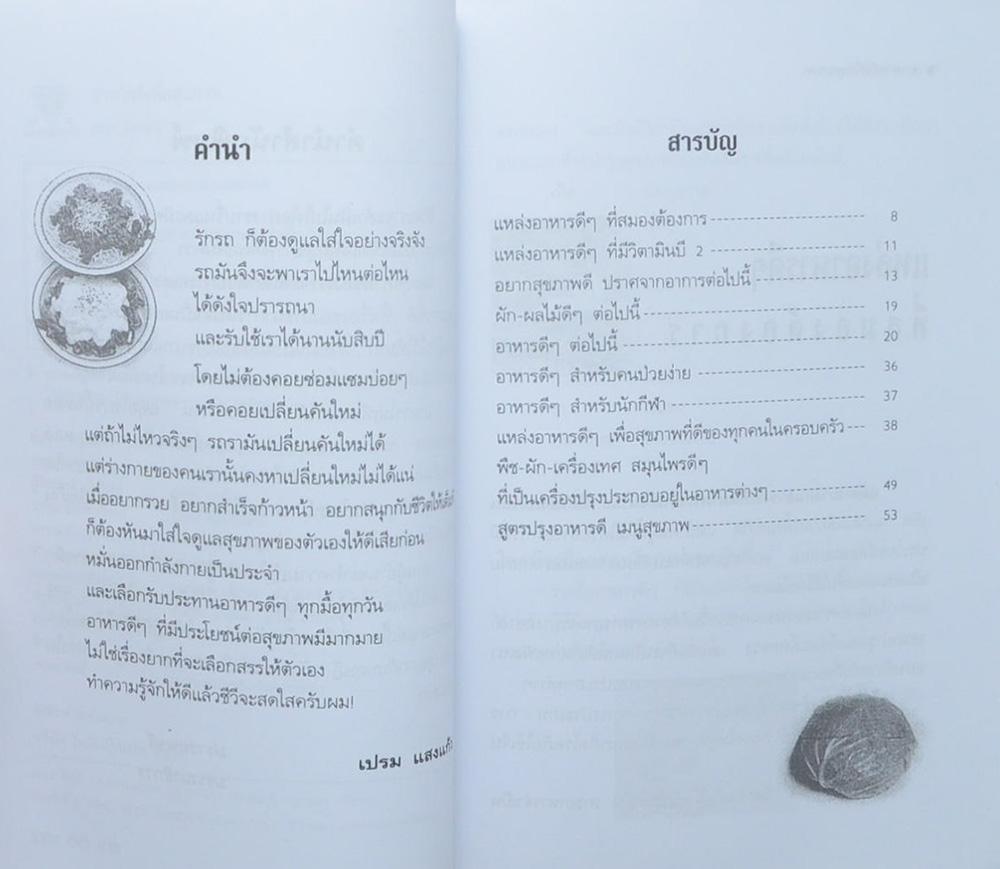 คำนำ
รักรถ ก็ต้องดูแลใส่ใจอย่างจริงจัง
รถมันจึงจะพาเราไปไหนต่อไหน
ได้ดังใจปรารถนา
และรับใช้เราได้นานนับสิบปี
โดยไม่ต้องคอยซ่อมแซมบ่อยๆ
หรือคอยเปลี่ยนคันใหม่
แต่ถ้าไม่ไหวจริงๆ รถรามันเปลี่ยนคันใหม่ได้
แต่ร่างกายของคนเรานั้นคงหาเปลี่ยนใหม่ไม่ได้แน่
เมื่ออยากรวย อยากสำเร็จก้าวหน้า อยากสนุกกับชีวิตให้
ก็ต้องหันมาใส่ใจดูแลสุขภาพของตัวเองให้ดีเสียก่อน
หมั่นออกกำลังกายเป็นประจำ
และเลือกรับประทานอาหารดีๆ ทุกมื้อทุกวัน
อาหารดีๆ ที่มีประโยชน์ต่อสุขภาพมีมากมาย
ไม่ใช่เรื่องยากที่จะเลือกสรรให้ตัวเอง
ทำความรู้จักให้ดีแล้วชีวีจะสดใสครับผม!
เปรม แสงแก้ว
สารบัญ
แหล่งอาหารดีๆ ที่สมองต้องการ 8
แหล่งอาหารดีๆ ที่มีวิตามินบี 2 11
อยากสุขภาพดี ปราศจากอาการต่อไปนี้ 13
ผัก-ผลไม้ดีๆ ต่อไปนี้ 19
อาหารดีๆ ต่อไปนี้ 20
อาหารดีๆ สำหรับคนป่วยง่าย 36
อาหารดีๆ สำหรับนักกีฬา 37
แหล่งอาหารดีๆ เพื่อสุขภาพที่ดีของทุกคนในครอบครัว 38
พืช-ผัก-เครื่องเทศ สมุนไพรดีๆ
ที่เป็นเครื่องปรุงประกอบอยู่ในอาหารต่างๆ 49
สูตรปรุงอาหารดี เมนูสุขภาพ 53